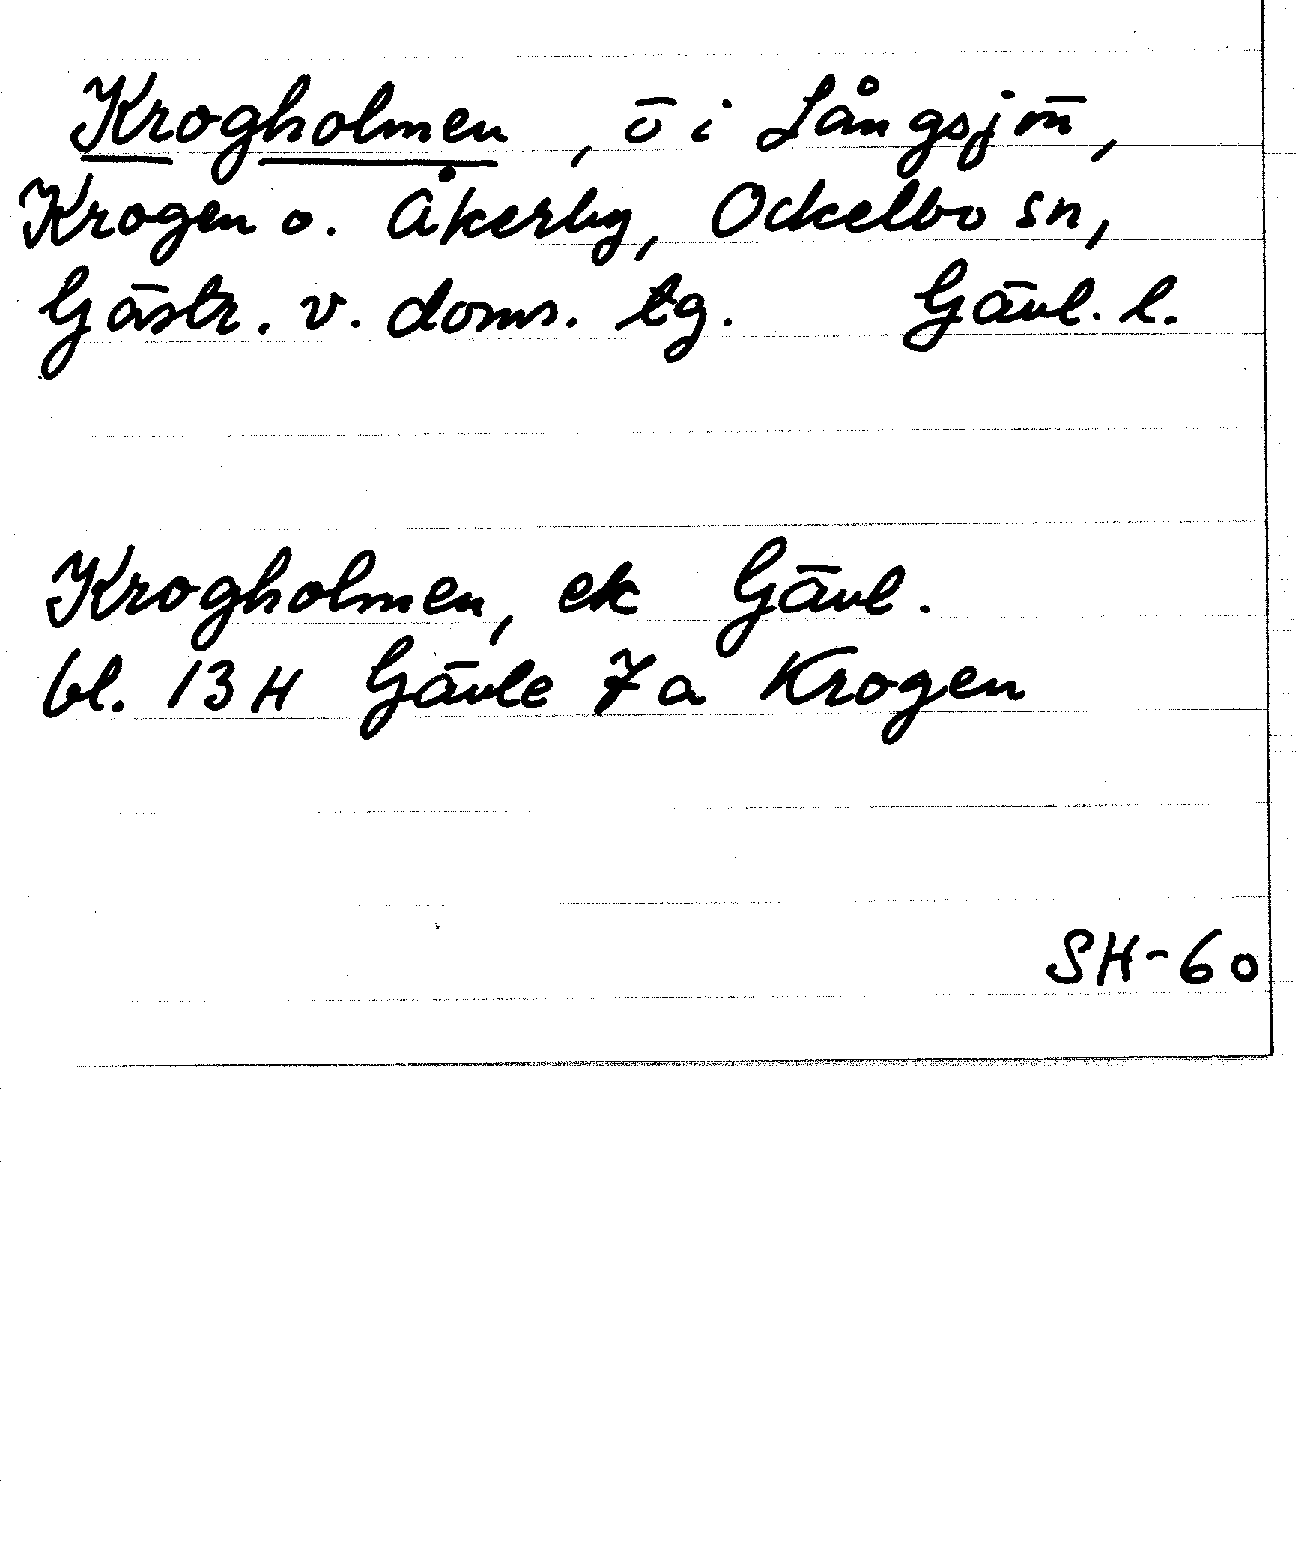 Krogholmen, ö i Långsjön,
Krogen o. Åkerby, Ockelbo sn,
Gästr. v. doms. tg. Gävl. l.
Krogholmen, ek Gävl.
bl. 13H Gävle 7a Krogen
SH-60